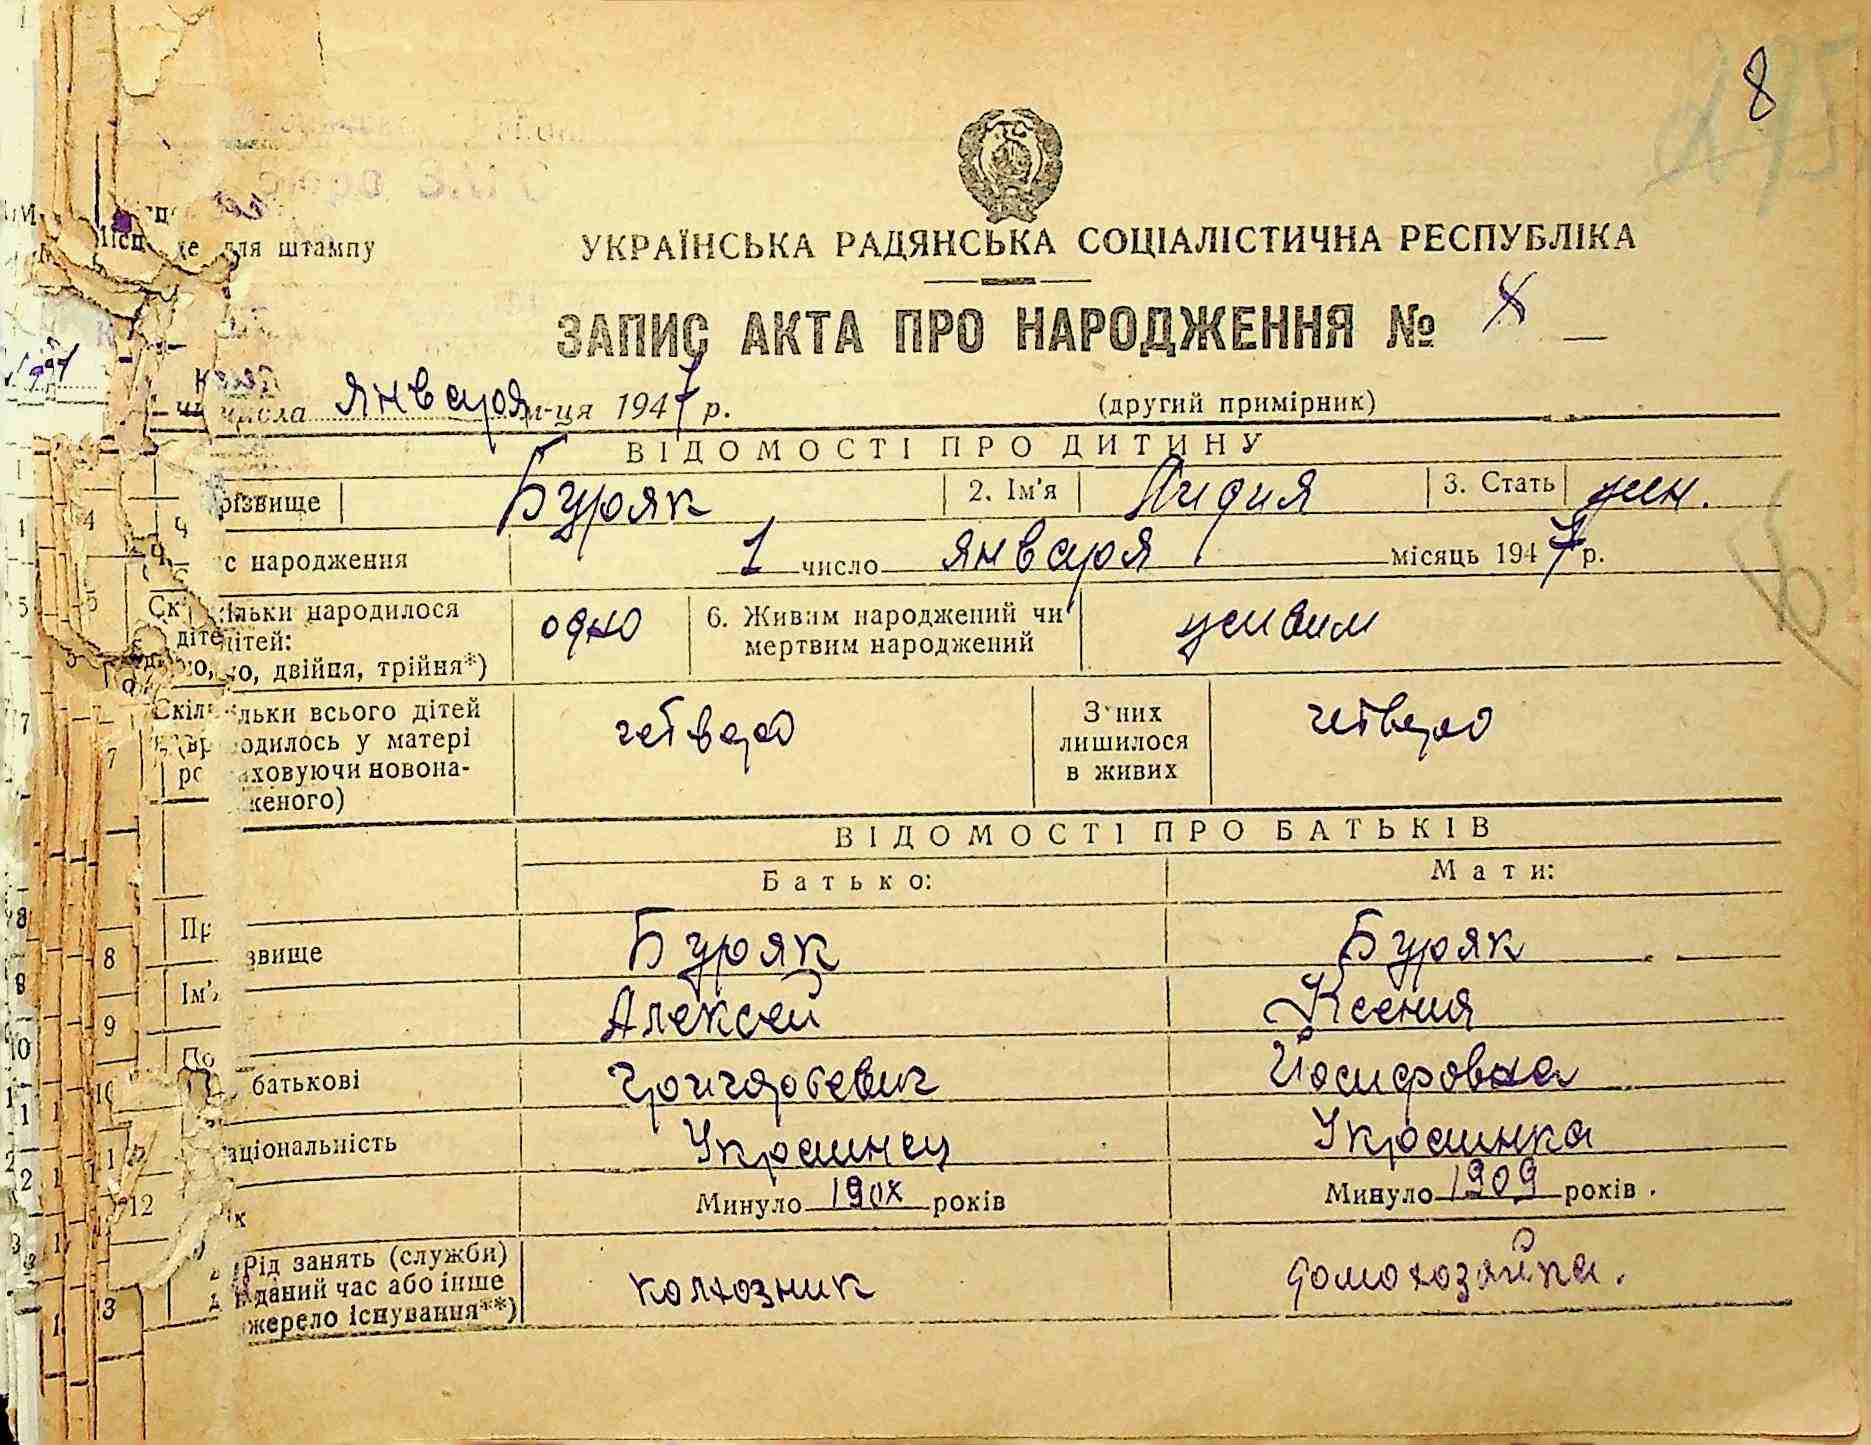 8
для штампу
УКРАЇНСЬКА РАДЯНСЬКА СОЦІАЛІСТИЧНА РЕСПУБЛІКА
ЗАПИС АКТА ПРО НАРОДЖЕННЯ № 8
числа января м-ця 1947 р. (другий примірник)
ВІДОМОСТІ ПРО ДИТИНУ
різвище Буряк 2. Ім'я Лидия 3. Стать жен.
с народження 1 число января місяць 1947 р.
ільки народилося одно 6. Живим народжений чи живим
дітей: мертвим народжений
но, двійня, трійня*)
льки всього дітей четверо З них четверо
одилось у матері лишилося
ховуючи новона- в живих
женого)
ВІДОМОСТІ ПРО БАТЬКІВ
Батько: Мати:
звище Буряк Буряк
Ім' Алексей Ксения
батькові Григорьевич Иосифовна
аціональність Украинец Украинка
Минуло 190х років Минуло 1909 років.
Рід занять (служби)
даний час або інше колхозник домохозяйка.
жерело існування**)